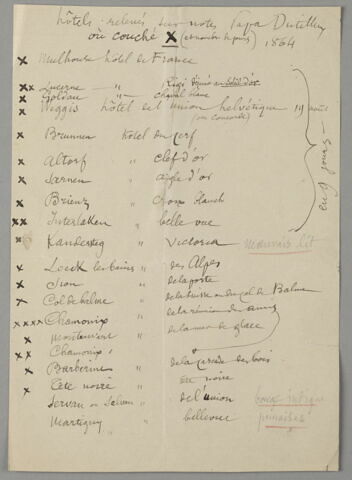 hôtels relevés sur notes Papa Dutilleux
où couché X (et nombre de jours) 1864
x Mulhouse hôtel de France
xx Lucerne " Rigi
x Goldau " cheval blanc
Weggis hôtel de l'union helvétique 19 août
(ou concorde)
x Brunnen hôtel du cerf
x Altorf " clef d'or
x Sarnen " aigle d'or
x Brienz " croix blanche
xx Interlaken " belle vue
x Kandersteg " Victoria mauvais lit
en 9 jours
x Loeck les bains " des Alpes
x Sion " de la poste
x Col de balme " de la suisse ou du col de Balme
xxxx Chamonix " de la réunion des amis
x montanvert " de la mer de glace
xx Chamonix "
x Barberine " de la cascade des bois
x Tête noire " tête noire
Servan ou Salvan " de l'union
Martigny " bellevue
punaises